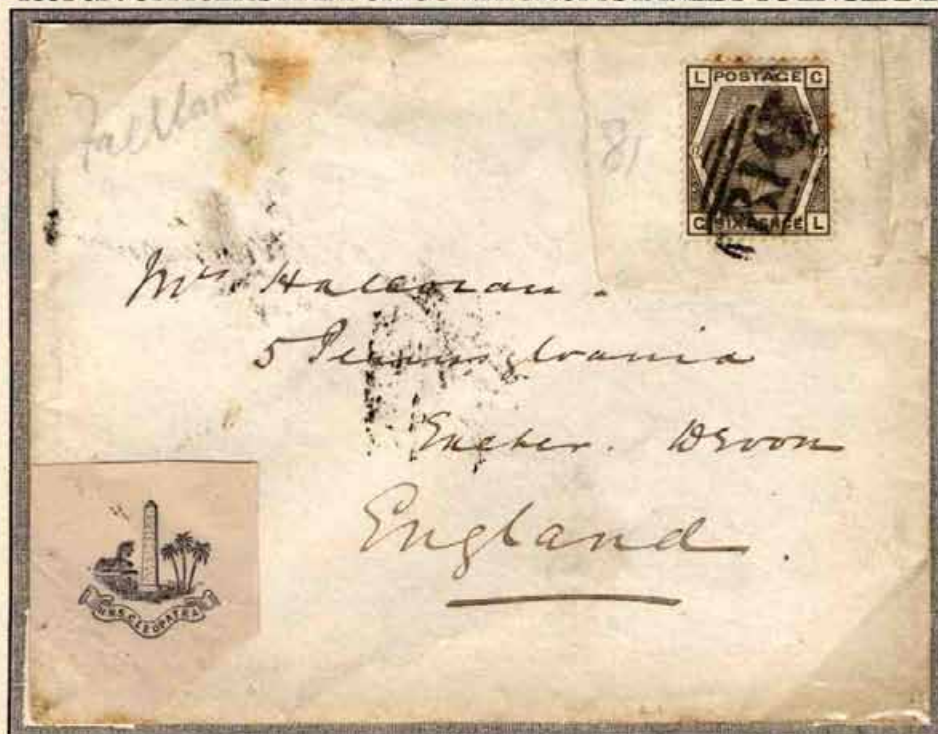 Falkland
81
L POSTAGE C
C SIX PENCE L
Mrs Halloran.
5 Pennsylvania
Exeter. Devon
England.
H.M.S. CLEOPATRA